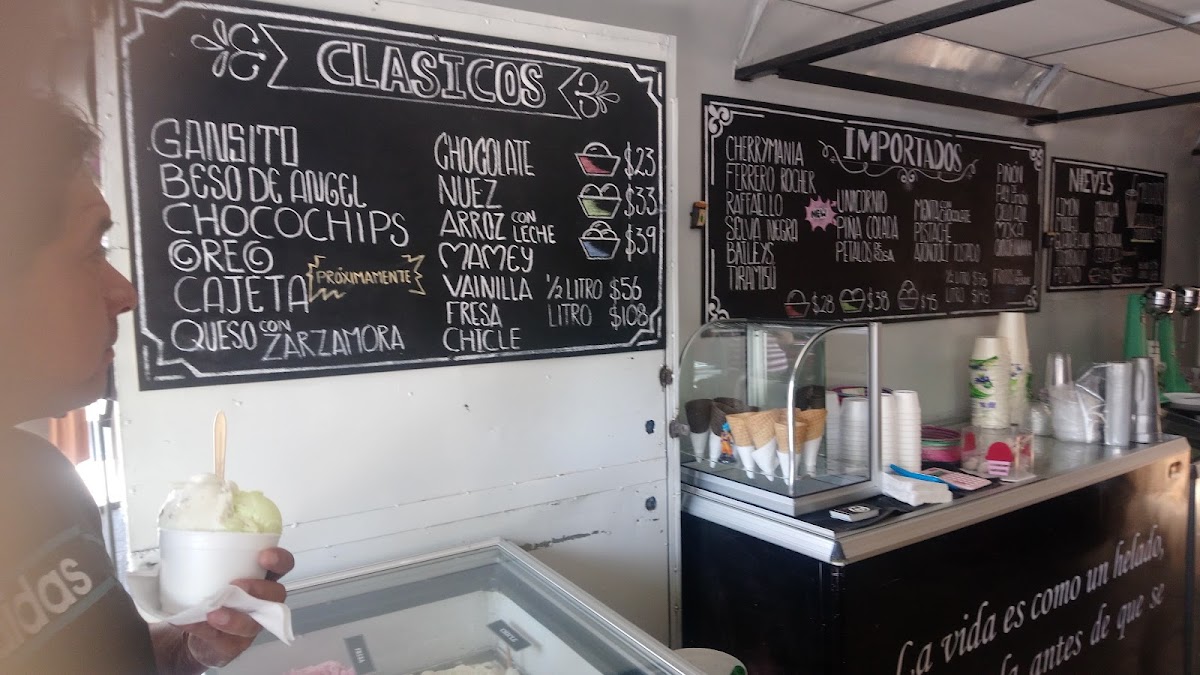 CLASICOS
GANSITO
BESO DE ANGEL
CHOCOCHIPS
OREO
CAJETA PRÓXIMAMENTE
QUESO CON ZARZAMORA
CHOCOLATE
NUEZ
ARROZ CON LECHE
MAMEY
VAINILLA
FRESA
CHICLE
$23
$33
$39
½ LITRO $56
LITRO $108
IMPORTADOS
CHERRYMANIA
FERRERO ROCHER
RAFFAELLO
SELVA NEGRA
BAILEYS
TIRAMISÚ
NEW
UNICORNIO
PIÑA COLADA
PETALOS DE ROSA
MENTA CON CHOCOLATE
PISTACHE
AJONJOLI TOSTADO
PIÑON
MOKA
$28
$38
$45
½ LITRO
LITRO
NIEVES
LIMON
PEPINO
adidas
FRESA
La vida es como un helado,
antes de que se